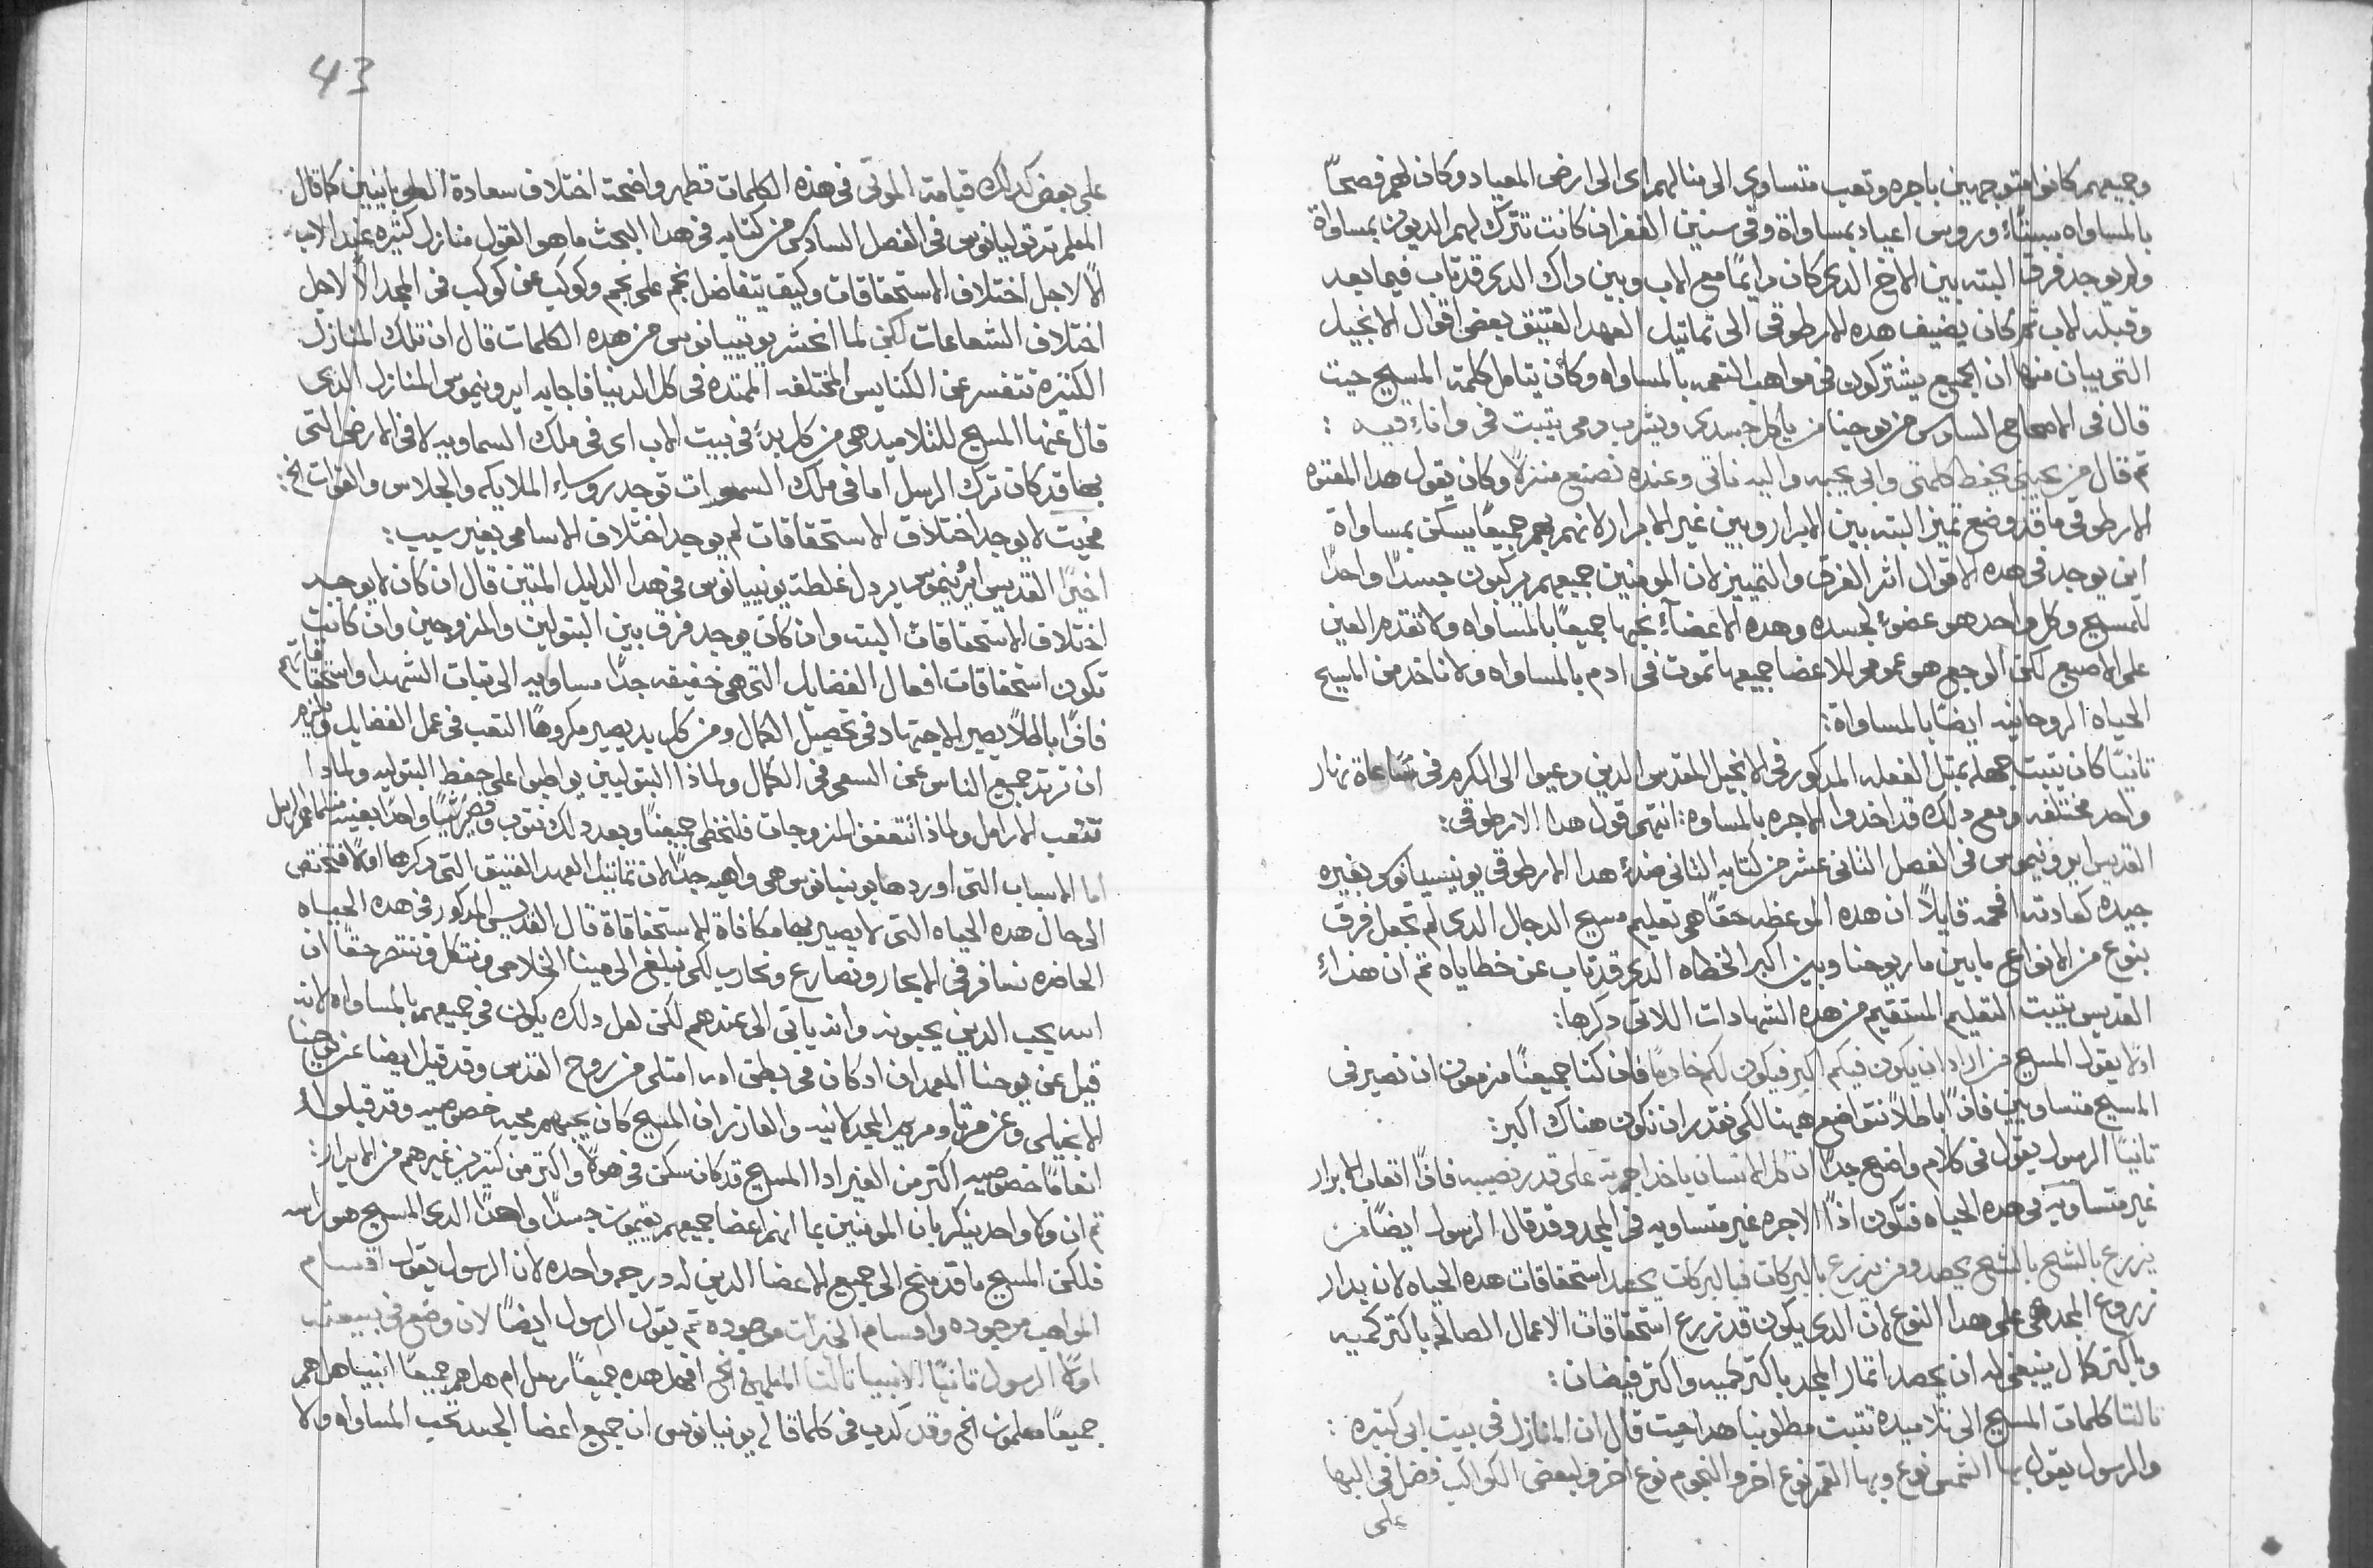 وجميعهم كانوا متوجهين باجره وتعب متساوي الى منالهم اى الى ارض الميعاد وكان لهم فصحاً
بالمساواه سبتاً وروس اعياد بمساواة وفي سنين الغفران كانت تترك لهم الديون بمساواة
ولم يوجد فرق البته بين الاخ الدى كان دايماً مع الاب وبين داك الدى قد تاب فيما بعد
وقبله الاب ثم كان يضيف هده الارطوقى الى تماتيل العهد العتيق بعض اقوال الانجيل
التى بيان منها ان الجميع يشتركون في مواهب النعمه بالمساواه وكان يتامل كلمة المسيح حيت
قال في الاصحاح السادس من يوحنا من ياكل جسدى ويشرب دمى يتبت في وانا فيه :
تم قال من يحبنى يحفظ كلمتى وابى يحبه واليه ناتى وعنده نصنع منزلاً وكان يقول هدا المعتوه
الارطوقى ما قد وضع تميز البته بين الابرار وبين غير الابرار لانهم بهم جميعاً يسكن بمساواة
اين يوجد في هده الاقوال اثر الفرق والتمييز لان المومنين جميعهم يركبون جسداً واحداً
للمسيح وكل واحد هو عضو لجسده وهده الاعضاء يحبها جميعاً بالمساواه ولا تقدم العين
على الاصبع لكن الوجع هو عمومى للاعضا جميعها تموت في ادم بالمساواه ولاناخد من المسيح
الحياه الروحانيه ايضاً بالمساواة :
تانياً كان يتبت جهله بمتل الفعله المدكور في الانجيل المقدس الدين دعيوا الى الكرم في ساعاة نهار
واحد مختلفه ومع دلك قد اخدوا الاجره بالمساوه : انتهى قول هدا الارطوقى :
القديس ايرونيموس في الفصل التانى عشر من كتابه التانى ضد هدا الارطوقى يونيسيانوس بغيره
جيده كعادته افحمه قايلاً ان هده الموعظه حقاً هى تعليم مسيح الدجال الدى لم تجعل فرق
بنوع من الانواع ما بين مار يوحنا وبين اكبر الخطاه الدى قد تاب عن خطاياه تم ان هدا
القديس يتبت التعليم المستقيم من هده الشهادات اللاتى دكرها :
اولا يقول المسيح من اراد ان يكون فيكم اكبر فيكون لكم خادماً فان كنا جميعناً مزمعون ان نصير في
المسيح متساويين فادًا باطلاً نتواضع ههنا لكى نقدر ان نكون هناك اكبر :
تانياً الرسول يقول في كلام واضح جداً ان كل الانسان ياخد اجرته على قدر نصيبه فادًا اتعاب الابرار
غير متساويه في هده الحياه فتكون ادًا الاجره غير متساويه في المجد وقد قال الرسول ايضاً من
يزرع بالشح بالشح يحصد ومن يزرع بالبركات فبالبركات يحصد استحقاقات هده الحياه لان بدار
زروع المجد هى على هدا النوع لان الدى يكون قد زرع استحقاقات الاعمال الصالحه باكتر كميه
وباكتر كمال ينبغى له ان يحصد اتمار المجد باكتر كميه واكتر فيضان :
تالتا كلمات المسيح الى تلاميده تتبت مطلوبنا هدا حيت قال ان المنازل في بيت ابى كتيره :
والرسول يقول بها الشمس نوع وبها القمر نوع اخر والنجوم نوع اخر ولبعض الكواكب فضل في البها
على
43
على بعض كدلك قيامة الموتى في هده الكلمات تظهر واضحة اختلاف سعادة الطوبانيين كما قال
المعلم ترتوليانوس في الفصل السادس من كتابه في هدا البحث ما هو القول منازل كتيره عند الاب
الا لاجل اختلاف الاستحقاقات وكيف يتفاضل نجم على نجم وكوكب عن كوكب في المجد الا لاجل
اختلاف الشعاعات لكن لما انحشر يونيبيانوس من هده الكلمات قال ان تلك المنازل
الكتيره تتفسر عن الكنايس المختلفه الممتده في كل الدنيا فاجابه ايرونيموس المنازل الدى
قال عنها المسيح للتلاميد هى من كل بد في بيت الاب اى في ملك السماويه لا في الارض التى
بها قد كان ترك الرسل اما في ملك السموات توجد روساء الملايكه والجلاس والقوات الخ :
فحيت لا يوجد اختلاف الاستحقاقات لم يوجد اختلاف الاسامى بغير سبب :
اخيراً القديس ايرنيموس يردل غلطة يونيبيانوس في هدا الدليل المتين قال ان كان لا يوجد
اختلاف الاستحقاقات البته وان كان يوجد فرق بين البتولين والمزوجين وان كانت
تكون استحقاقات افعال الفضايل التى هى خفيفه جداً مساويه الى تبات الشهدا واستحقاقاتهم
فادًا باطلاً يصير الاجتهاد في تحصيل الكمال ومن كل بد يصير مكروهاً التعب في عمل الفضايل ويلزم
ان ترتد جميع الناس عن السعى في الكمال ولماذا البتوليين يواظبوا على حفظ البتوليه ولمادا
تتعب الارامل ولماذا تتعفف المنزوجات فلنخطى جميعناً وبعد دلك نتوب ونصير شياً واحداً بعينه متلما هم الرسل
اما الاسباب التى اوردها يونيبيانوس هى واهيه جداً لان تماتيل العهد العتيق التى دكرها اولاً فتختص
الى حال هده الحياه التى لا يصير بها مكافاة الاستحقاقاة قال القديس المدكور في هده الحياه
الحاضره نسافر في الابحار ونصارع ونحارب لكى نبلغ الى مينا الخلاص ونتكلل وننتصر حقاً ان
الله يحب الدين يحبونه وانه ياتى الى عندهم لكن لعل دلك يكون في جميعهم بالمساواه لانه
قيل عن يوحنا المعمدان اد كان في بطن امه امتلى من روح القدس وقد قيل ايضا عن يوحنا
الانجيلى وعن مرتا ومريم المجدلانيه والعازر ان المسيح كان يحبهم محبه خصوصيه وقد قبلوا
انعاماً خصوصيه اكتر من الغير ادا المسيح قد كان سكن في هولا واكتر من كتيرين غيرهم من الابرار :
تم ان ولا واحد ينكر بان المومنين بما انهم اعضا جميعهم يقيمون جسداً واحداً الدى المسيح هو راسه
فلكن المسيح ما قد منح الى جميع الاعضا الدين له درجه واحده لان الرسول يقول اقسام
المواهب موجوده واقسام الخيرات موجوده تم يقول الرسول ايضاً لان وضع في بيعته
اولا الرسول تانياً الانبيا تالتا المعلمين الخ افهل هده جميعاً رسل ام هل هم جميعاً انبيا هل هم
جميعاً معلمون الخ وقد كدب في كلما قال يونيبيانوس ان جميع اعضا الجسد تحب المساواه ولا